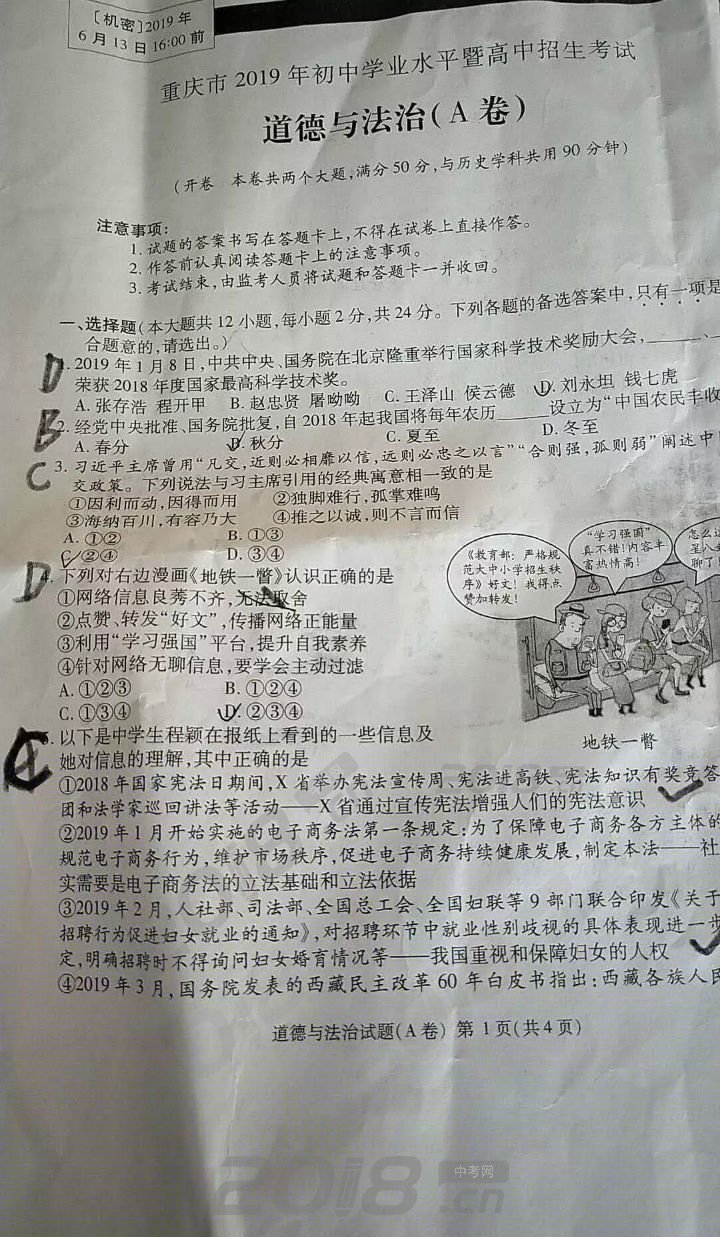 [机密]2019年
6月13日16:00前
重庆市2019年初中学业水平暨高中招生考试
道德与法治(A卷)
(开卷 本卷共两个大题,满分50分,与历史学科共用90分钟)
注意事项:
1.试题的答案书写在答题卡上,不得在试卷上直接作答。
2.作答前认真阅读答题卡上的注意事项。
3.考试结束,由监考人员将试题和答题卡一并收回。
一、选择题(本大题共12小题,每小题2分,共24分。下列各题的备选答案中,只有一项是
合题意的,请选出。)
D 1.2019年1月8日,中共中央、国务院在北京隆重举行国家科学技术奖励大会,______、
荣获2018年度国家最高科学技术奖。
A.张存浩 程开甲 B.赵忠贤 屠呦呦 C.王泽山 侯云德 D.刘永坦 钱七虎
B 2.经党中央批准、国务院批复,自2018年起我国将每年农历______设立为“中国农民丰收
A.春分 B.秋分 C.夏至 D.冬至
C 3.习近平主席曾用“凡交,近则必相靡以信,远则必忠之以言”“合则强,孤则弱”阐述中
交政策。下列说法与习主席引用的经典寓意相一致的是
①因利而动,因得而用 ②独脚难行,孤掌难鸣
③海纳百川,有容乃大 ④推之以诚,则不言而信
A.①② B.①③
C.②④ D.③④
D 4.下列对右边漫画《地铁一瞥》认识正确的是
①网络信息良莠不齐,无法取舍
②点赞、转发“好文”,传播网络正能量
③利用“学习强国”平台,提升自我素养
④针对网络无聊信息,要学会主动过滤
A.①②③ B.①②④
C.①③④ D.②③④
《教育部:严格规
范大中小学招生秩
序》好文!我得点
赞加转发!
“学习强国”
真不错!内容丰
富热情高!
怎么这
星八卦
聊了!
地铁一瞥
以下是中学生程颖在报纸上看到的一些信息及
她对信息的理解,其中正确的是
①2018年国家宪法日期间,X省举办宪法宣传周、宪法进高铁、宪法知识有奖竞答
团和法学家巡回讲法等活动——X省通过宣传宪法增强人们的宪法意识
②2019年1月开始实施的电子商务法第一条规定:为了保障电子商务各方主体的
规范电子商务行为,维护市场秩序,促进电子商务持续健康发展,制定本法——社
实需要是电子商务法的立法基础和立法依据
③2019年2月,人社部、司法部、全国总工会、全国妇联等9部门联合印发《关于
招聘行为促进妇女就业的通知》,对招聘环节中就业性别歧视的具体表现进一步
定,明确招聘时不得询问妇女婚育情况等——我国重视和保障妇女的人权
④2019年3月,国务院发表的西藏民主改革60年白皮书指出:西藏各族人民
道德与法治试题(A卷) 第1页(共4页)
2018.cn
中考网